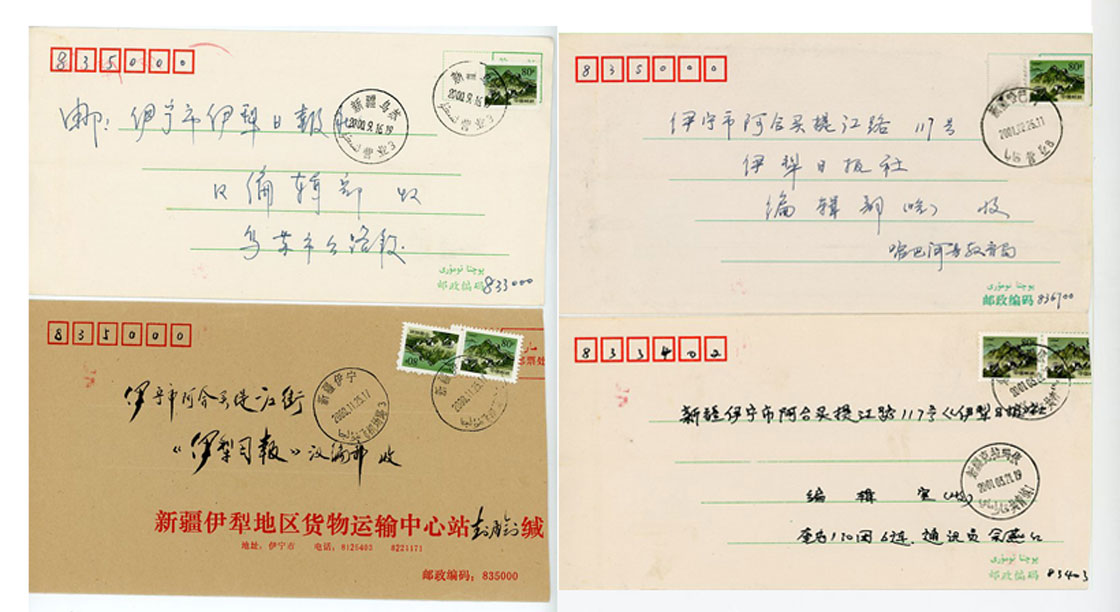 835000
80分
新疆乌苏
2000.9.16.19
营业3
邮: 伊宁市伊犁日报社
编辑部 收
乌苏市公路段
پوچتا نومۇرى
邮政编码 833000
835000
80分
新疆
2001.12.25.11
伊宁市阿合买提江路 117号
伊犁日报社
编辑部(哈) 收
哈巴河县教育局
پوچتا نومۇرى
邮政编码 836700
835000
80分
新疆伊宁
2000.11.25.17
伊宁市阿合买提江街
《伊犁日报》汉编部 收
新疆伊犁地区货物运输中心站 缄
地址: 伊宁市 电话: 8126405 8221171
邮政编码: 835000
833402
新疆伊宁市阿合买提江路117号《伊犁日报社
新疆克拉玛依
2001.03.21.19
编辑室(收)
奎屯130团6连 通讯员
پوچتا نومۇرى
邮政编码 83403